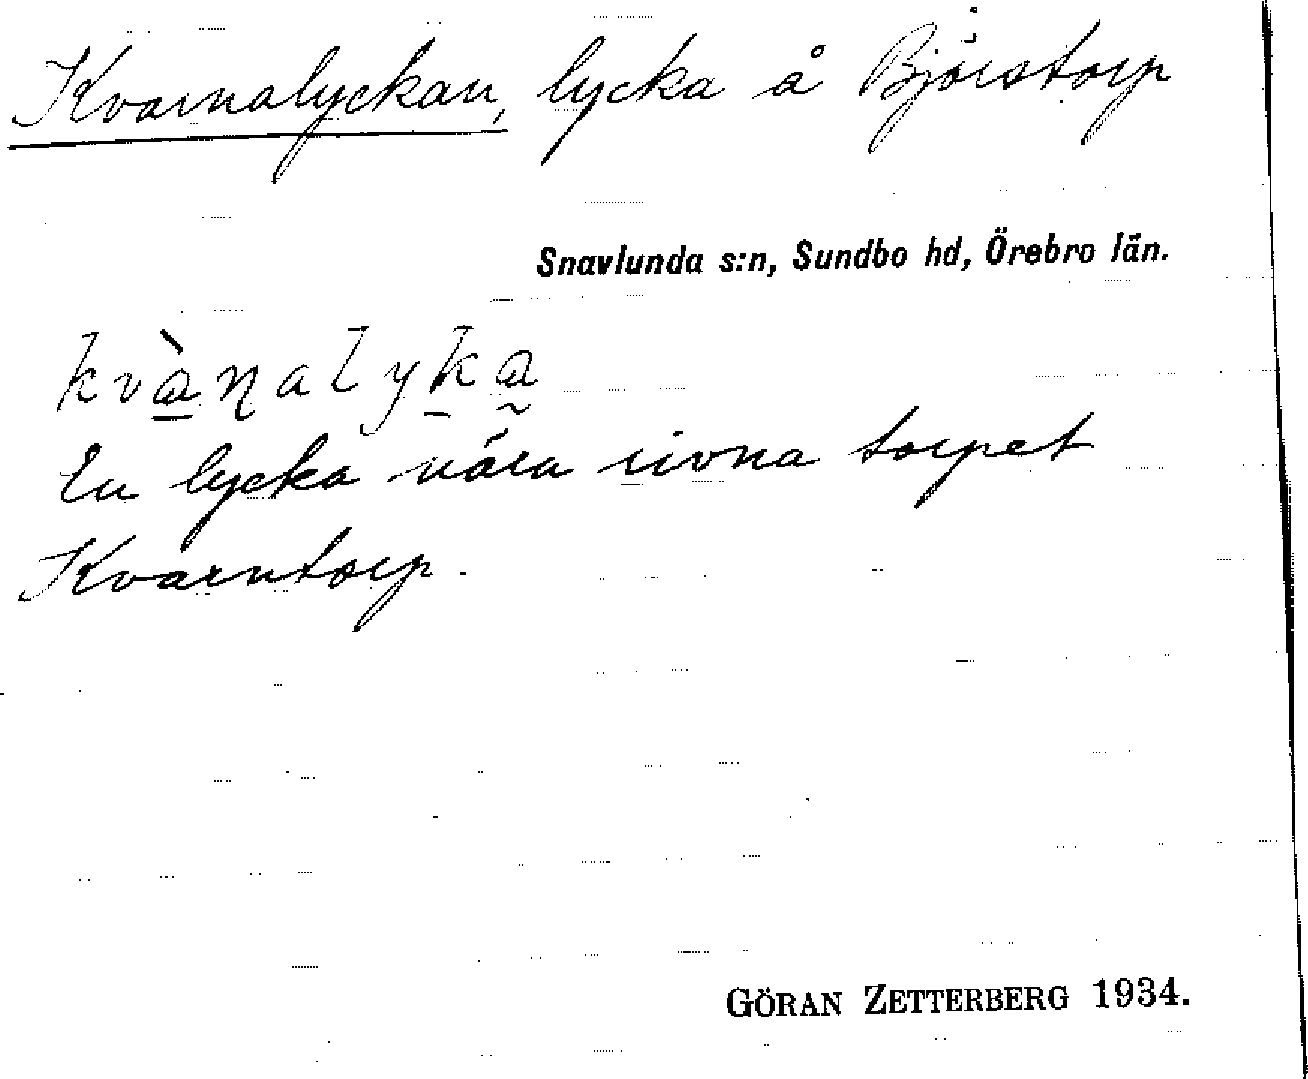 Kvarnalyckan, lycka å Björstorp
Snavlunda s:n, Sundbo hd, Örebro län.
kvànalyka
En lycka nära rivna torpet
Kvarntorp.
GÖRAN ZETTERBERG 1934.